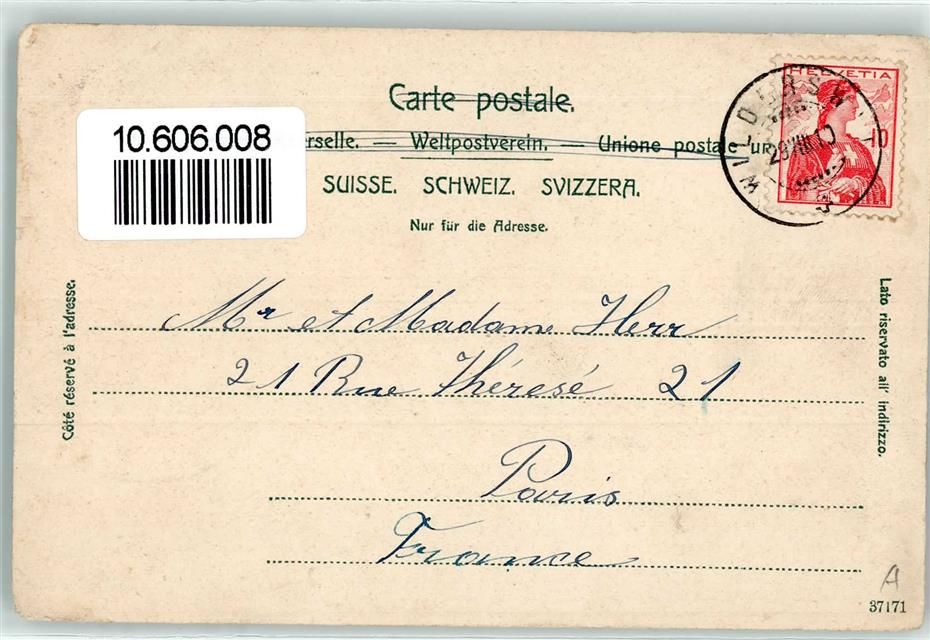 Carte postale.
10.606.008
erselle. — Weltpostverein. — Unione postale un
SUISSE. SCHWEIZ. SVIZZERA.
Nur für die Adresse.
HELVETIA
10
Côté réservé à l'adresse.
Lato riservato all' indirizzo.
Mr et Madame Herr
21 Rue Thérese 21
Paris
France
A
37171